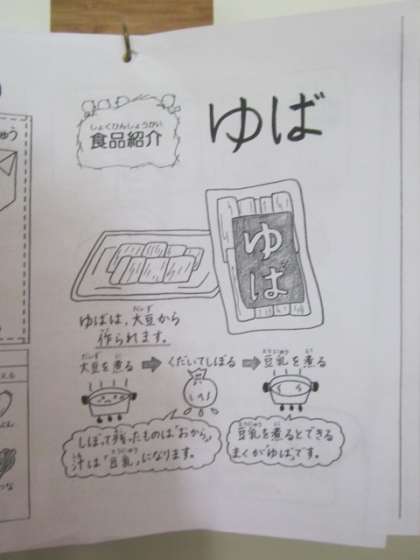 ゆば
しょくひんしょうかい
食品紹介
ゆば
ゆばは、大豆から
作られます。
大豆を煮る ➡ くだいてしぼる ➡ 豆乳を煮る
しぼって残ったものは「おから」
汁は「豆乳」になります。
豆乳を煮るとできる
まくがゆばです。